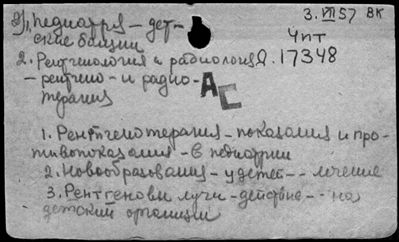 3. VIII 57 ВК
Чпт
Д. 17348
1, педиатрия – дет-
ские болезни
2. Рентгенология и радиология
– рентгено – и радио-
терапия
АС
1. Рентгенотерапия – показания и про-
тивопоказания – в педиатрии
2. Новообразования – у детей – – лечение
3. Рентгеновы лучи – действие – – на
детский организм